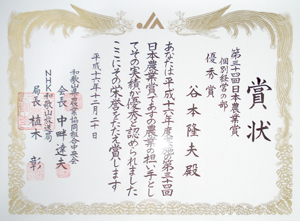 賞状
第三十回日本農業賞
個別経営の部
優秀賞
谷本隆夫殿
あなたは平成十六年度
日本農業賞であすの農業の担い手とし
てその実績が優秀と認められました
ここにその栄誉をたたえ賞します
平成十六年十二月二十日
和歌山県農業協同組合中央会
会長 中畔達夫
NHK和歌山放送局
局長 植木彰